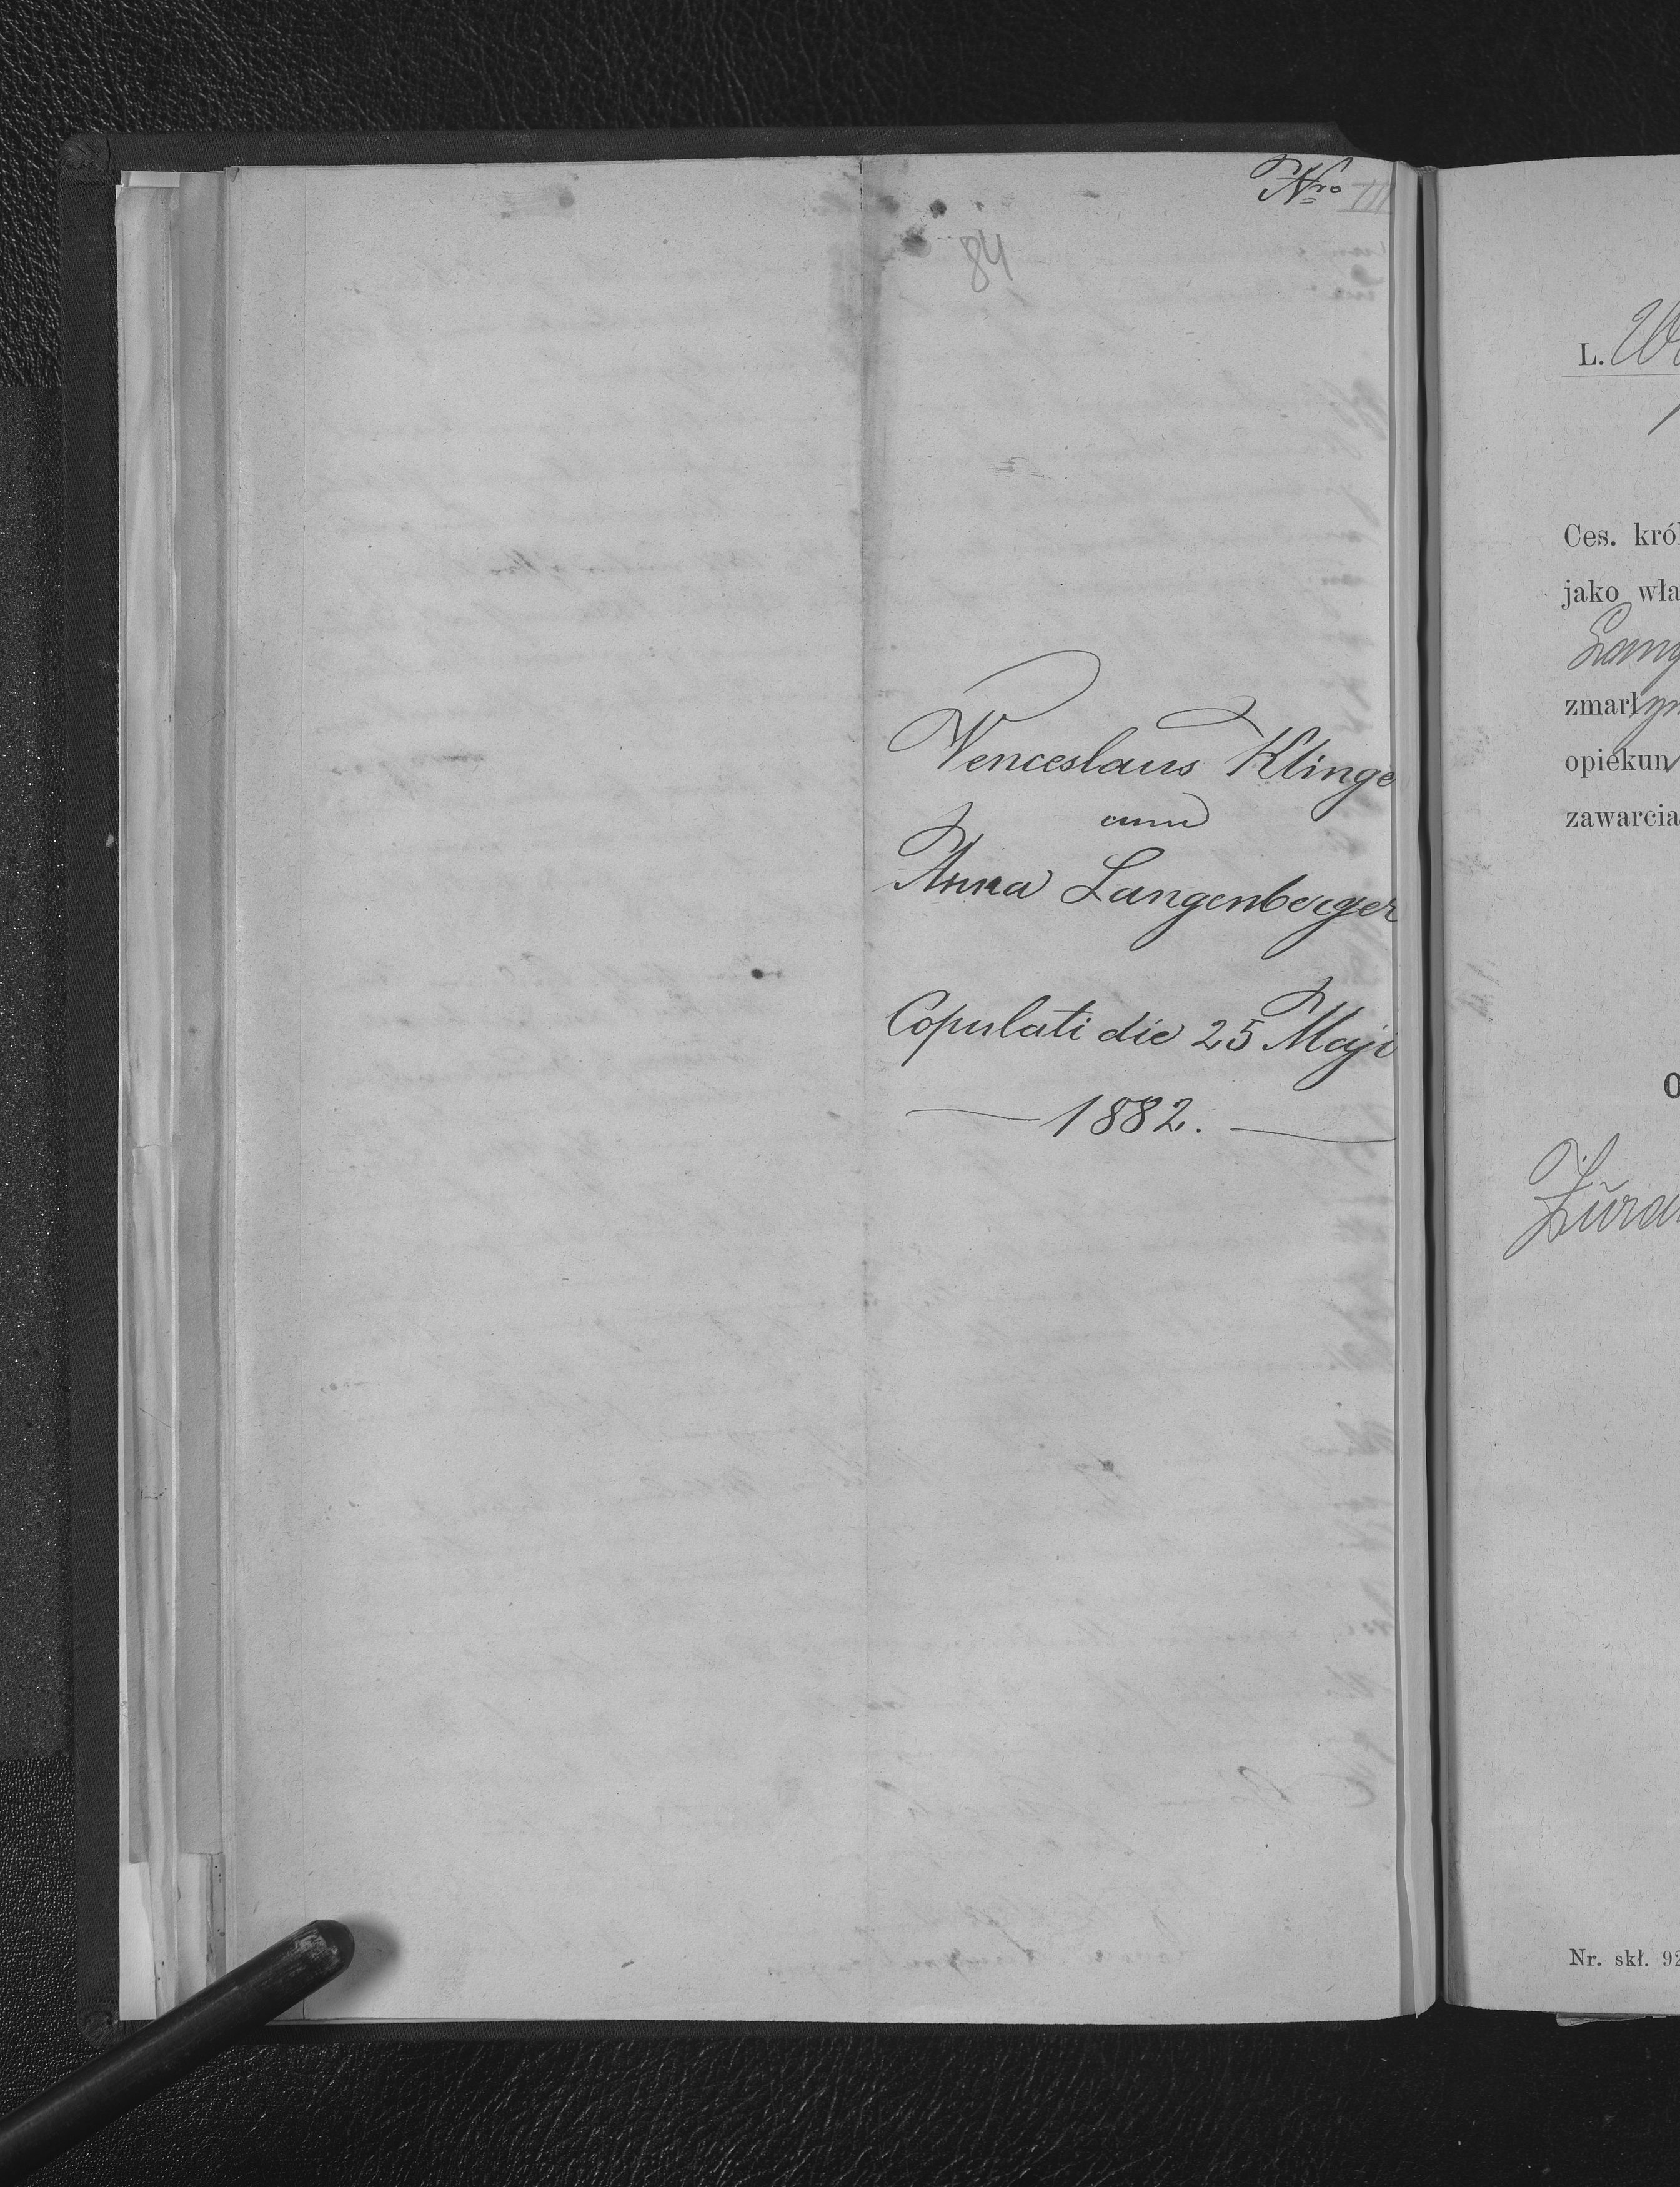 Nro III
84
Venceslaus Klinge
cum
Anna Langenberger
Copulati die 25 Maji
1882.
L.
Ces. kró
jako wła
Lang
zmarłym
opiekun
zawarcia
O
Żura
Nr. skł. 92